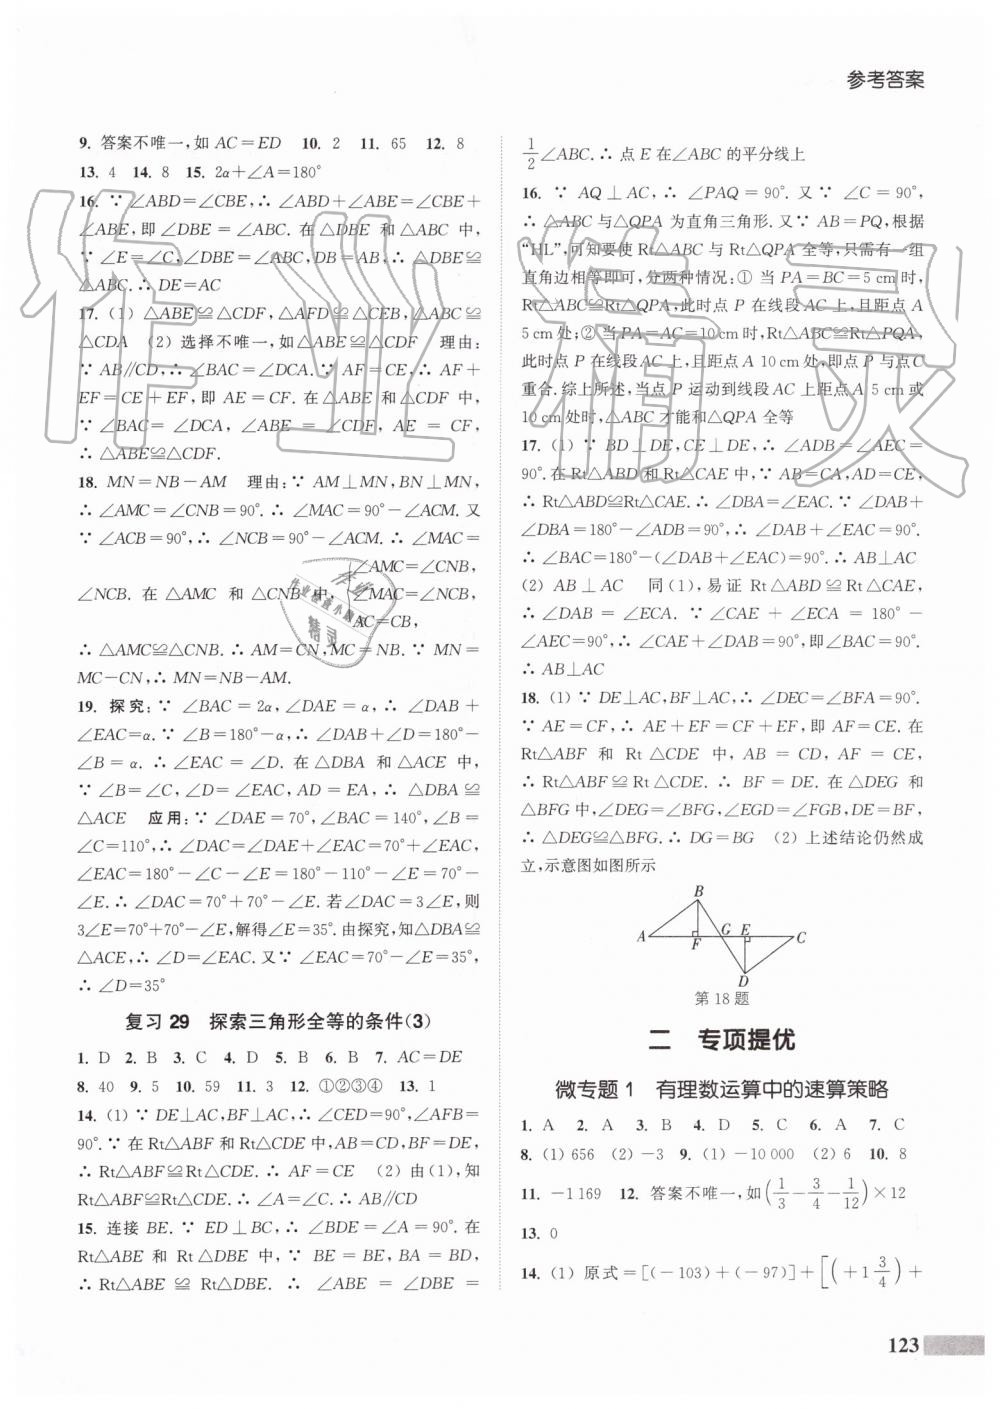 参考答案
9. 答案不唯一,如 AC=ED 10. 2 11. 65 12. 8
13. 4 14. 8 15. 2α+∠A=180°
16. ∵ ∠ABD=∠CBE,∴ ∠ABD+∠ABE=∠CBE+
∠ABE,即∠DBE=∠ABC. 在△DBE 和△ABC 中,
∵ ∠E=∠C,∠DBE=∠ABC,DB=AB,∴ △DBE≌
△ABC. ∴ DE=AC
17. (1) △ABE≌△CDF,△AFD≌△CEB,△ABC≌
△CDA (2) 选择不唯一,如△ABE≌△CDF 理由:
∵ AB∥CD,∴ ∠BAC=∠DCA. ∵ AF=CE,∴ AF+
EF=CE+EF,即 AE=CF. 在△ABE 和△CDF 中,
∵ ∠BAC= ∠DCA, ∠ABE= ∠CDF, AE = CF,
∴ △ABE≌△CDF.
18. MN=NB-AM 理由:∵ AM⊥MN,BN⊥MN,
∴ ∠AMC=∠CNB=90°. ∴ ∠MAC=90°-∠ACM. 又
∵ ∠ACB=90°,∴ ∠NCB=90°-∠ACM. ∴ ∠MAC=
∠AMC=∠CNB,
∠NCB. 在△AMC 和△CNB 中,∠MAC=∠NCB,
AC=CB,
∴ △AMC≌△CNB. ∴ AM=CN,MC=NB. ∵ MN=
MC-CN,∴ MN=NB-AM.
19. 探究:∵ ∠BAC=2α,∠DAE=α,∴ ∠DAB+
∠EAC=α. ∵ ∠B=180°-α,∴ ∠DAB+∠D=180°-
∠B=α. ∴ ∠EAC=∠D. 在△DBA 和△ACE 中,
∵ ∠B=∠C,∠D=∠EAC,AD=EA,∴ △DBA≌
△ACE 应用:∵ ∠DAE=70°,∠BAC=140°,∠B=
∠C=110°,∴ ∠DAC=∠DAE+∠EAC=70°+∠EAC,
∠EAC=180°-∠C-∠E=180°-110°-∠E=70°-
∠E. ∴ ∠DAC=70°+70°-∠E. 若∠DAC=3∠E,则
3∠E=70°+70°-∠E,解得∠E=35°. 由探究,知△DBA≌
△ACE,∴ ∠D=∠EAC. 又∵ ∠EAC=70°-∠E=35°,
∴ ∠D=35°
复习 29 探索三角形全等的条件(3)
1. D 2. B 3. C 4. D 5. B 6. B 7. AC=DE
8. 40 9. 5 10. 59 11. 3 12. ①②③④ 13. 1
14. (1) ∵ DE⊥AC,BF⊥AC,∴ ∠CED=90°,∠AFB=
90°. 在 Rt△ABF 和 Rt△CDE 中,AB=CD,BF=DE,
∴ Rt△ABF≌Rt△CDE. ∴ AF=CE (2) 由(1),知
Rt△ABF≌Rt△CDE,∴ ∠A=∠C. ∴ AB∥CD
15. 连接 BE. ∵ ED⊥BC,∴ ∠BDE=∠A=90°. 在
Rt△ABE 和 Rt△DBE 中,∵ BE = BE,BA = BD,
∴ Rt△ABE ≌ Rt△DBE. ∴ ∠ABE = ∠DBE =
1/2∠ABC. ∴ 点 E 在∠ABC 的平分线上
16. ∵ AQ⊥AC,∴ ∠PAQ=90°. 又∵ ∠C=90°,
∴ △ABC 与△QPA 为直角三角形. 又∵ AB=PQ,根据
“HL”,可知要使 Rt△ABC 与 Rt△QPA 全等,只需有一组
直角边相等即可,分两种情况:① 当 PA=BC=5 cm 时,
Rt△ABC≌Rt△QPA,此时点 P 在线段 AC 上,且距点 A
5 cm 处;② 当 PA=AC=10 cm 时,Rt△ABC≌Rt△PQA,
此时点 P 在线段 AC 上,且距点 A 10 cm 处,即点 P 与点 C
重合. 综上所述,当点 P 运动到线段 AC 上距点 A 5 cm 或
10 cm 处时,△ABC 才能和△QPA 全等
17. (1) ∵ BD⊥DE,CE⊥DE,∴ ∠ADB=∠AEC=
90°. 在 Rt△ABD 和 Rt△CAE 中,∵ AB=CA,AD=CE,
∴ Rt△ABD≌Rt△CAE. ∴ ∠DBA=∠EAC. ∵ ∠DAB+
∠DBA=180°-∠ADB=90°,∴ ∠DAB+∠EAC=90°.
∴ ∠BAC=180°-(∠DAB+∠EAC)=90°. ∴ AB⊥AC
(2) AB⊥AC 同(1),易证 Rt△ABD≌Rt△CAE,
∴ ∠DAB = ∠ECA. ∵ ∠CAE + ∠ECA = 180° -
∠AEC=90°,∴ ∠CAE+∠DAB=90°,即∠BAC=90°.
∴ AB⊥AC
18. (1) ∵ DE⊥AC,BF⊥AC,∴ ∠DEC=∠BFA=90°.
∵ AE=CF,∴ AE+EF=CF+EF,即 AF=CE. 在
Rt△ABF 和 Rt△CDE 中, AB = CD, AF = CE,
∴ Rt△ABF≌Rt△CDE. ∴ BF=DE. 在△DEG 和
△BFG 中,∠DEG=∠BFG,∠EGD=∠FGB,DE=BF,
∴ △DEG≌△BFG. ∴ DG=BG (2) 上述结论仍然成
立,示意图如图所示
B
A F G E C
D
第 18 题
二 专项提优
微专题 1 有理数运算中的速算策略
1. A 2. A 3. B 4. D 5. C 6. A 7. C
8. (1) 656 (2) -3 9. (1) -10 000 (2) 6 10. 8
11. -1 169 12. 答案不唯一,如(1/3-3/4-1/12)×12
13. 0
14. (1) 原式=[(-103)+(-97)]+[(+1 3/4)+
123
作业精灵
作业检查小助手
精灵